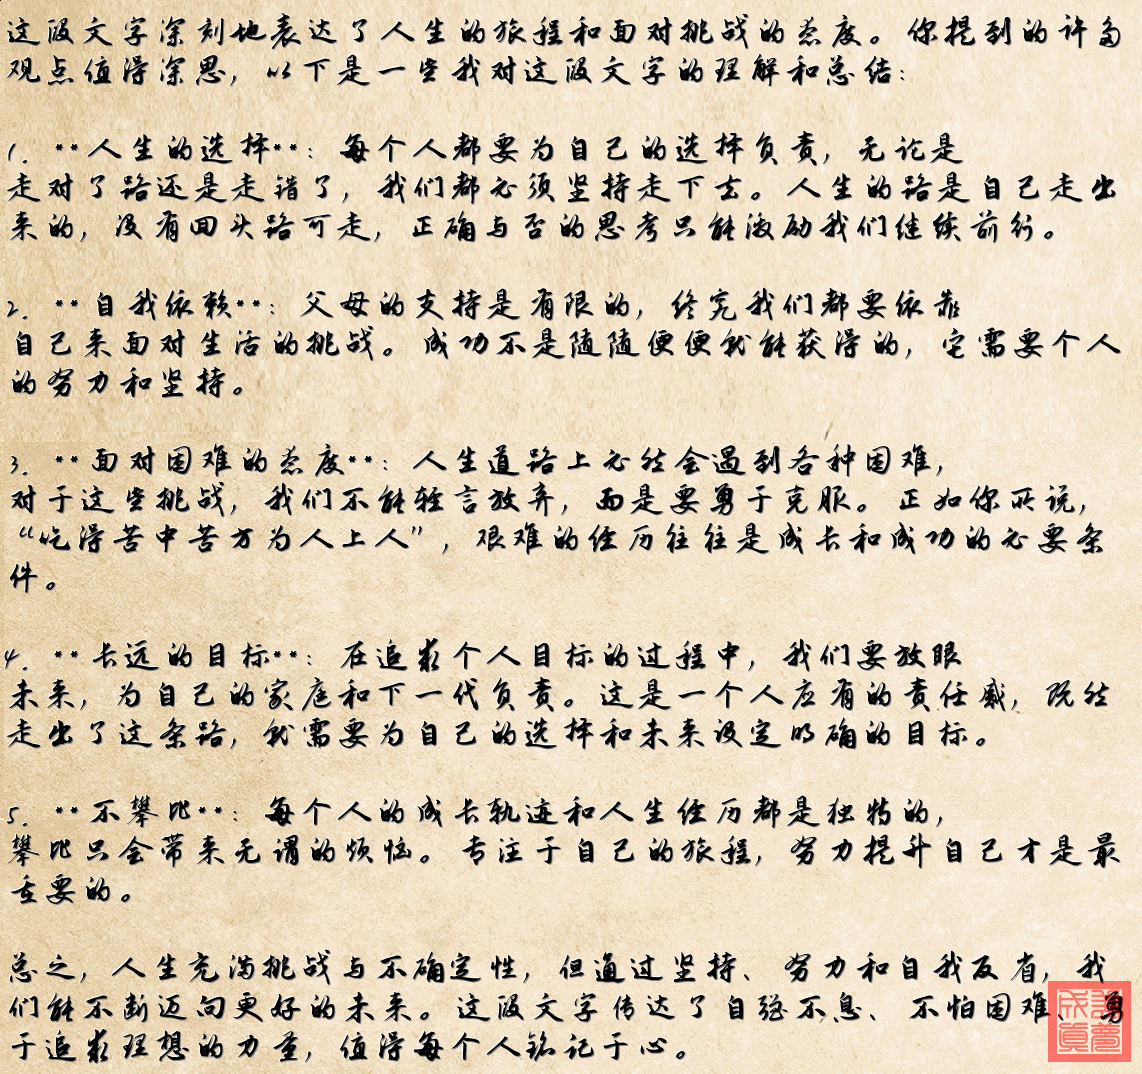 这段文字深刻地表达了人生的旅程和面对挑战的态度。你提到的许多
观点值得深思，以下是一些我对这段文字的理解和总结：
1. **人生的选择**：每个人都要为自己的选择负责，无论是
走对了路还是走错了，我们都必须坚持走下去。人生的路是自己走出
来的，没有回头路可走，正确与否的思考只能激励我们继续前行。
2. **自我依赖**：父母的支持是有限的，终究我们都要依靠
自己来面对生活的挑战。成功不是随随便便就能获得的，它需要个人
的努力和坚持。
3. **面对困难的态度**：人生道路上必然会遇到各种困难，
对于这些挑战，我们不能轻言放弃，而是要勇于克服。正如你所说，
“吃得苦中苦方为人上人”，艰难的经历往往是成长和成功的必要条
件。
4. **长远的目标**：在追求个人目标的过程中，我们要放眼
未来，为自己的家庭和下一代负责。这是一个人应有的责任感，既然
走出了这条路，就需要为自己的选择和未来设定明确的目标。
5. **不攀比**：每个人的成长轨迹和人生经历都是独特的，
攀比只会带来无谓的烦恼。专注于自己的旅程，努力提升自己才是最
重要的。
总之，人生充满挑战与不确定性，但通过坚持、努力和自我反省，我
们能不断迈向更好的未来。这段文字传达了自强不息、不怕困难、勇
于追求理想的力量，值得每个人铭记于心。